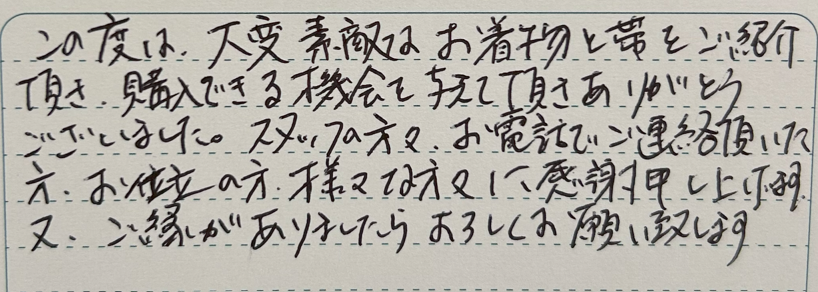 この度は、大変素敵なお着物と帯をご紹介
頂き、購入できる機会を与えて頂きありがとう
ございました。スタッフの方々、お電話でご連絡頂いた
方、お仕立の方、様々な方々に感謝申し上げます。
又、ご縁がありましたらよろしくお願い致します